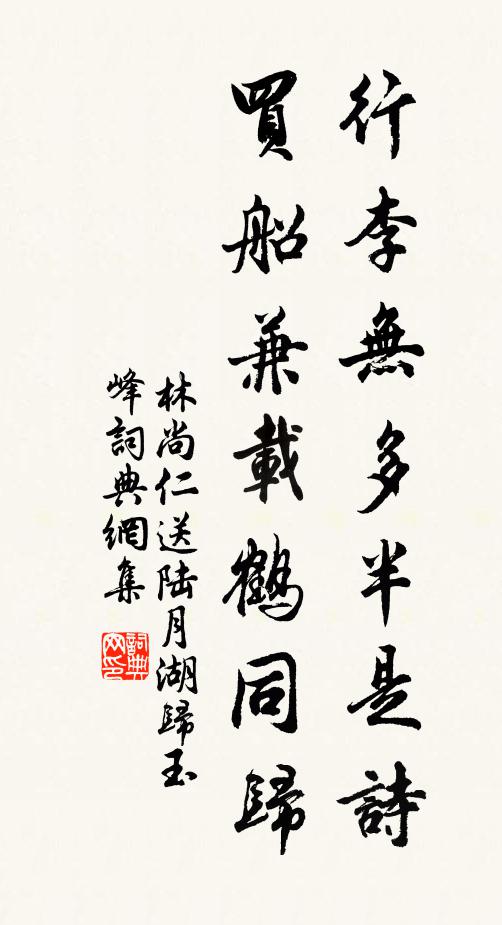 行李無多半是詩
買船兼載鶴同歸
林尚仁送陸月湖歸玉
峰詞典網集
詞典
网印